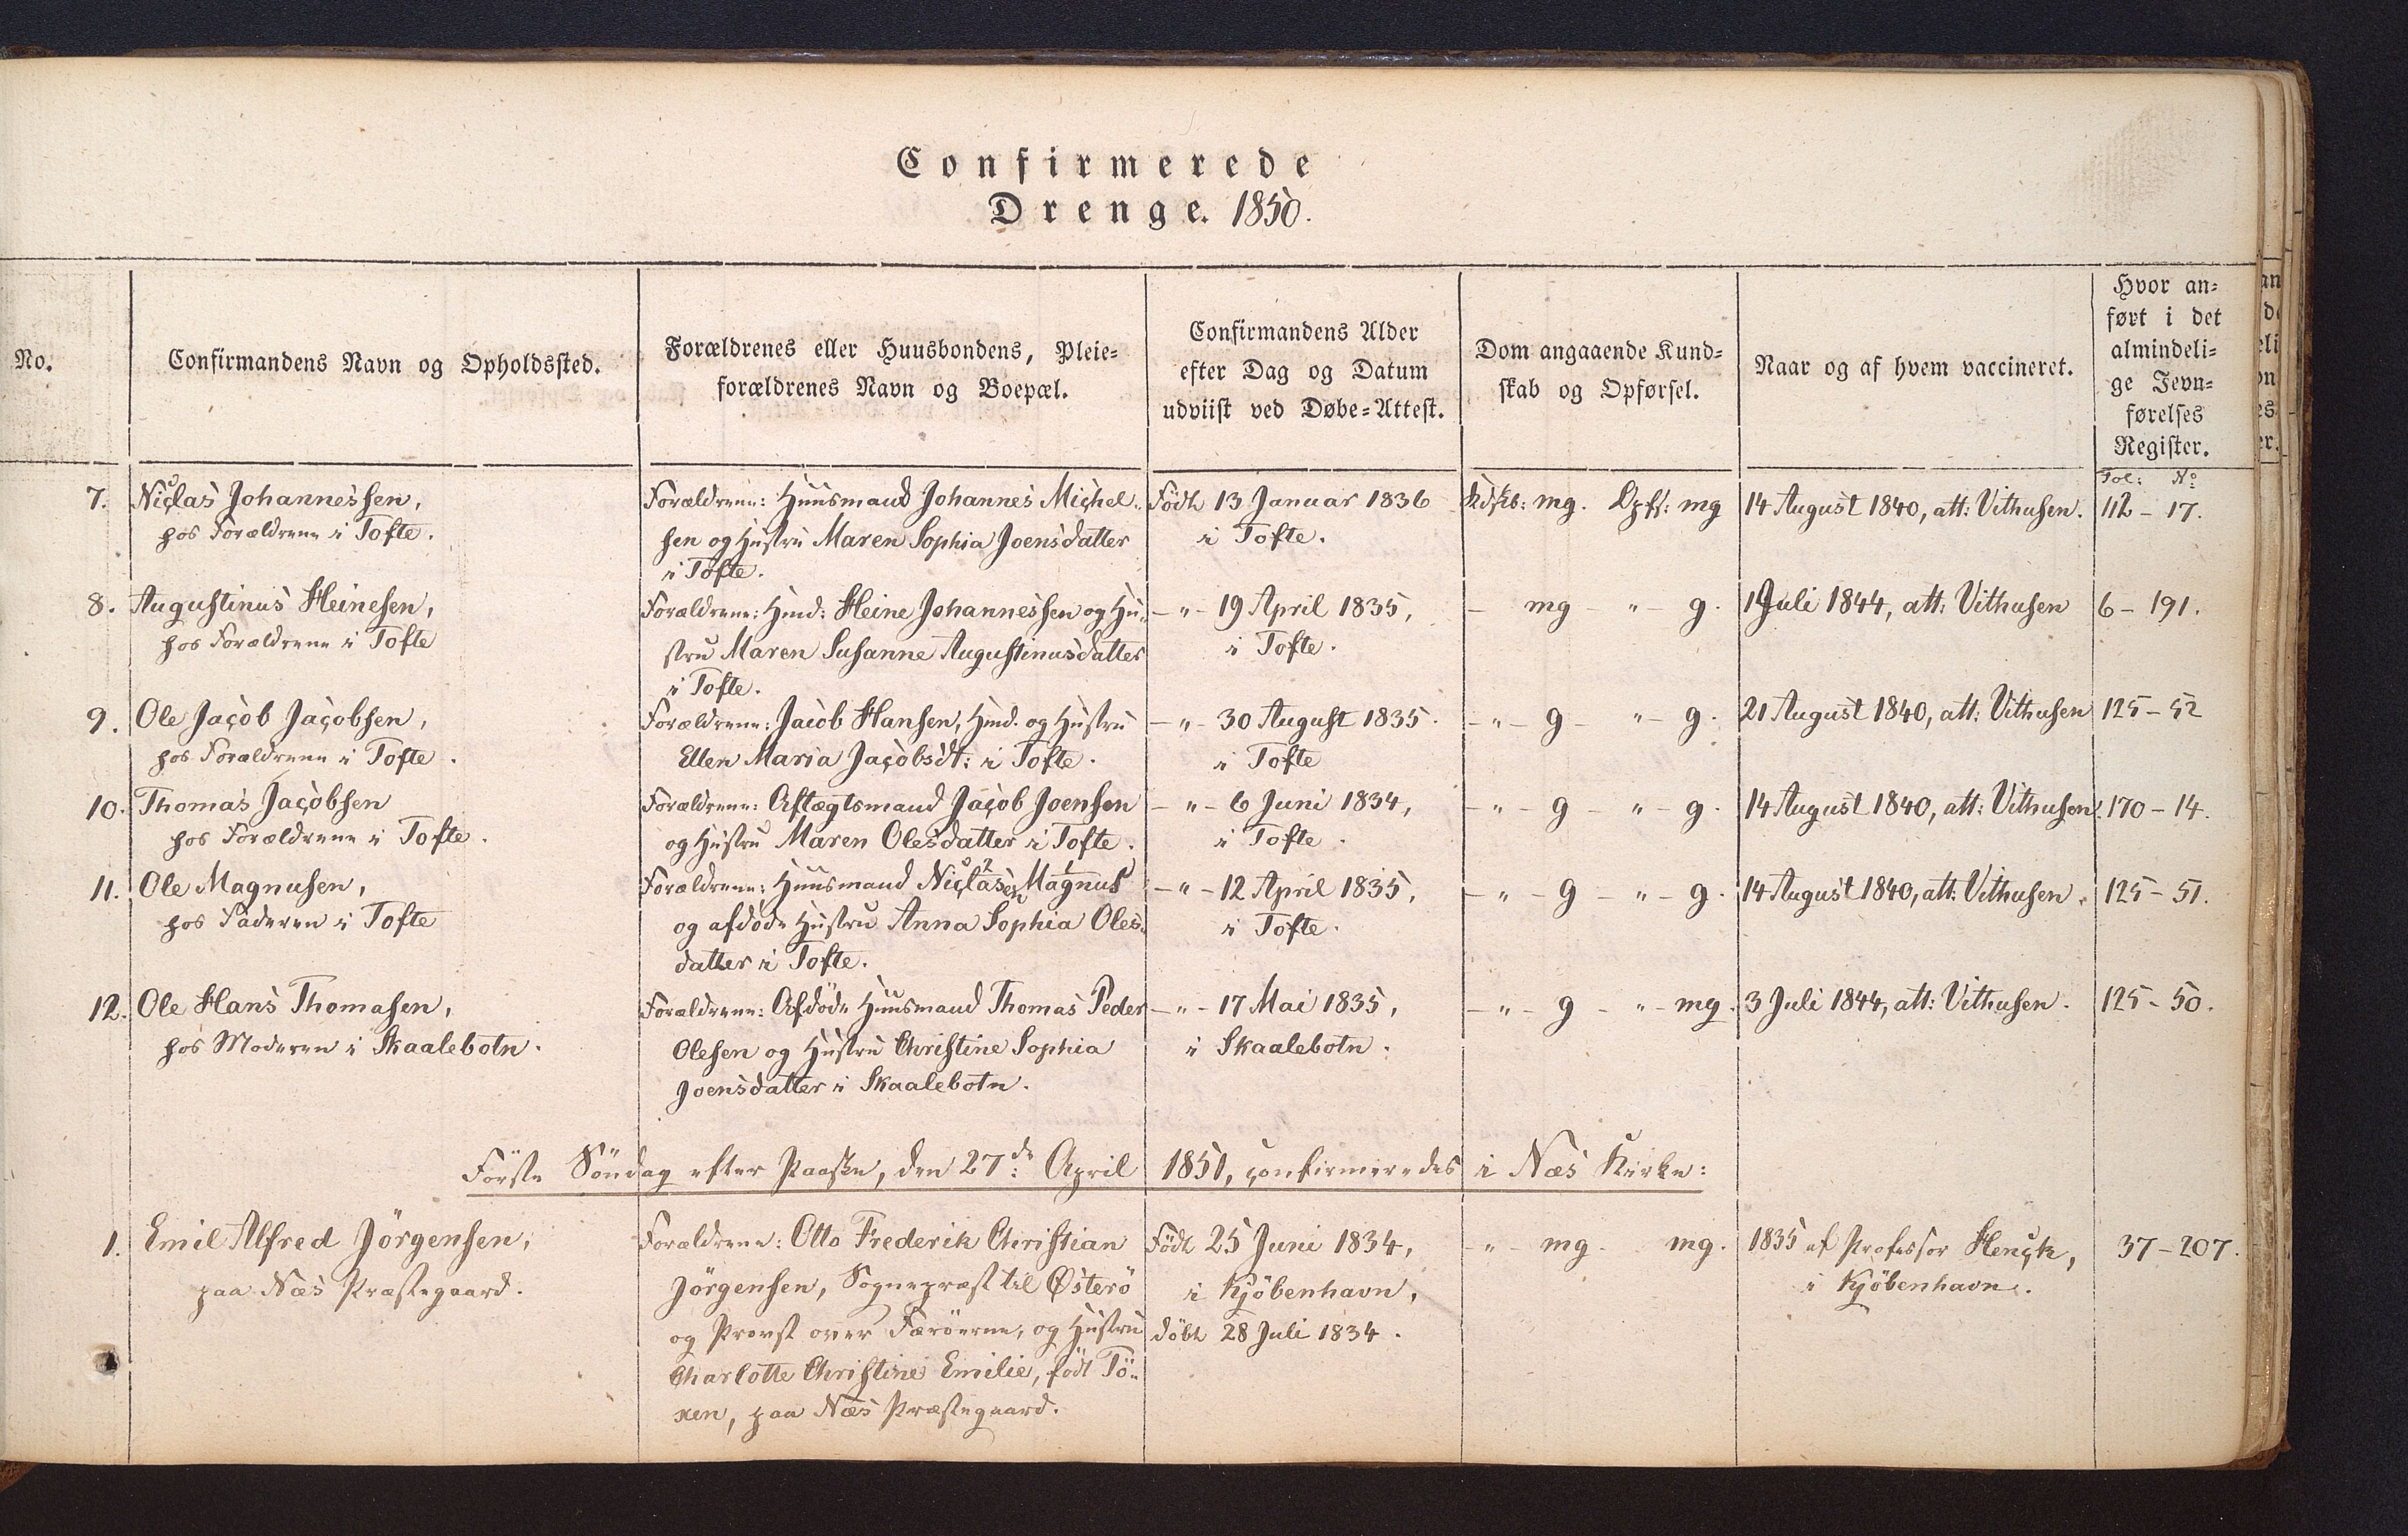 Confirmerede
Drenge. 1850.
No.
Confirmandens Navn og Opholdssted.
Forældrenes eller Huusbondens, Pleie=
forældrenes Navn og Boepæl.
Confirmandens Alder
efter Dag og Datum
udviist ved Døbe=Attest.
Dom angaaende Kund=
skab og Opførsel.
Naar og af hvem vaccineret.
Hvor an=
ført i det
almindeli=
ge Jevn=
førelses
Register.
Fol: No
7.
Niclas Johannessen,
hos Forældrene i Tofte.
Forældrene: Huusmand Johannes Michel-
sen og Hustru Maren Sophia Joensdatter
i Tofte.
Født 13 Januar 1836
i Tofte.
Kdskb: mg. Opfs: mg
14 August 1840, att: Vithusen.
112 - 17.
8.
Augustinus Heinesen,
hos Forældrene i Tofte
Forældrene: Hmd: Heine Johannessen og Hu-
stru Maren Susanne Augustinusdatter
i Tofte.
- " - 19 April 1835,
i Tofte.
- mg - " - g.
Juli 1844, att: Vithusen
6 - 191.
9.
Ole Jacob Jacobsen,
hos Forældrene i Tofte.
Forældrene: Jacob Hansen, Hmd. og Hustru
Ellen Maria Jacobsdt: i Tofte.
- " - 30 August 1835.
i Tofte
- " - g - " - g.
21 August 1840, att: Vithusen
125 - 52
10.
Thomas Jacobsen
hos Forældrene i Tofte.
Forældrene: Aftægtsmand Jacob Joensen
og Hustru Maren Olesdatter i Tofte.
- " - 6 Juni 1834,
i Tofte.
- " - g - " - g.
14 August 1840, att: Vithusen.
170 - 14.
11.
Ole Magnusen,
hos Faderen i Tofte
Forældrene: Huusmand Niclasen Magnus
og afdøde Hustru Anna Sophia Oles-
datter i Tofte.
- " - 12 April 1835,
i Tofte.
- " - g - " - g.
14 August 1840, att: Vithusen.
125 - 51.
12.
Ole Hans Thomasen,
hos Moderen i Skaalebotn.
Forældrene: Afdøde Huusmand Thomas Peder
Olesen og Hustru Christine Sophia
Joensdatter i Skaalebotn.
- " - 17 Mai 1835,
i Skaalebotn.
- " - g - " - mg.
3 Juli 1844, att: Vithusen.
125 - 50.
Förste Söndag efter Paaske, den 27de April 1851, confirmeredes i Næs Kirke:
1.
Emil Alfred Jörgensen,
paa Næs Præstegaard.
Forældrene: Otto Frederik Christian
Jörgensen, Sognepræst til Østerö
og Provst over Færöerne, og Hustru
Charlotte Christine Emilie, född Tö-
xen, paa Næs Præstegaard.
Födt 25 Juni 1834,
i Kjöbenhavn,
döbt 28 Juli 1834.
- " - mg. mg.
1835 af Professor Henck,
i Kjöbenhavn.
37 - 207.